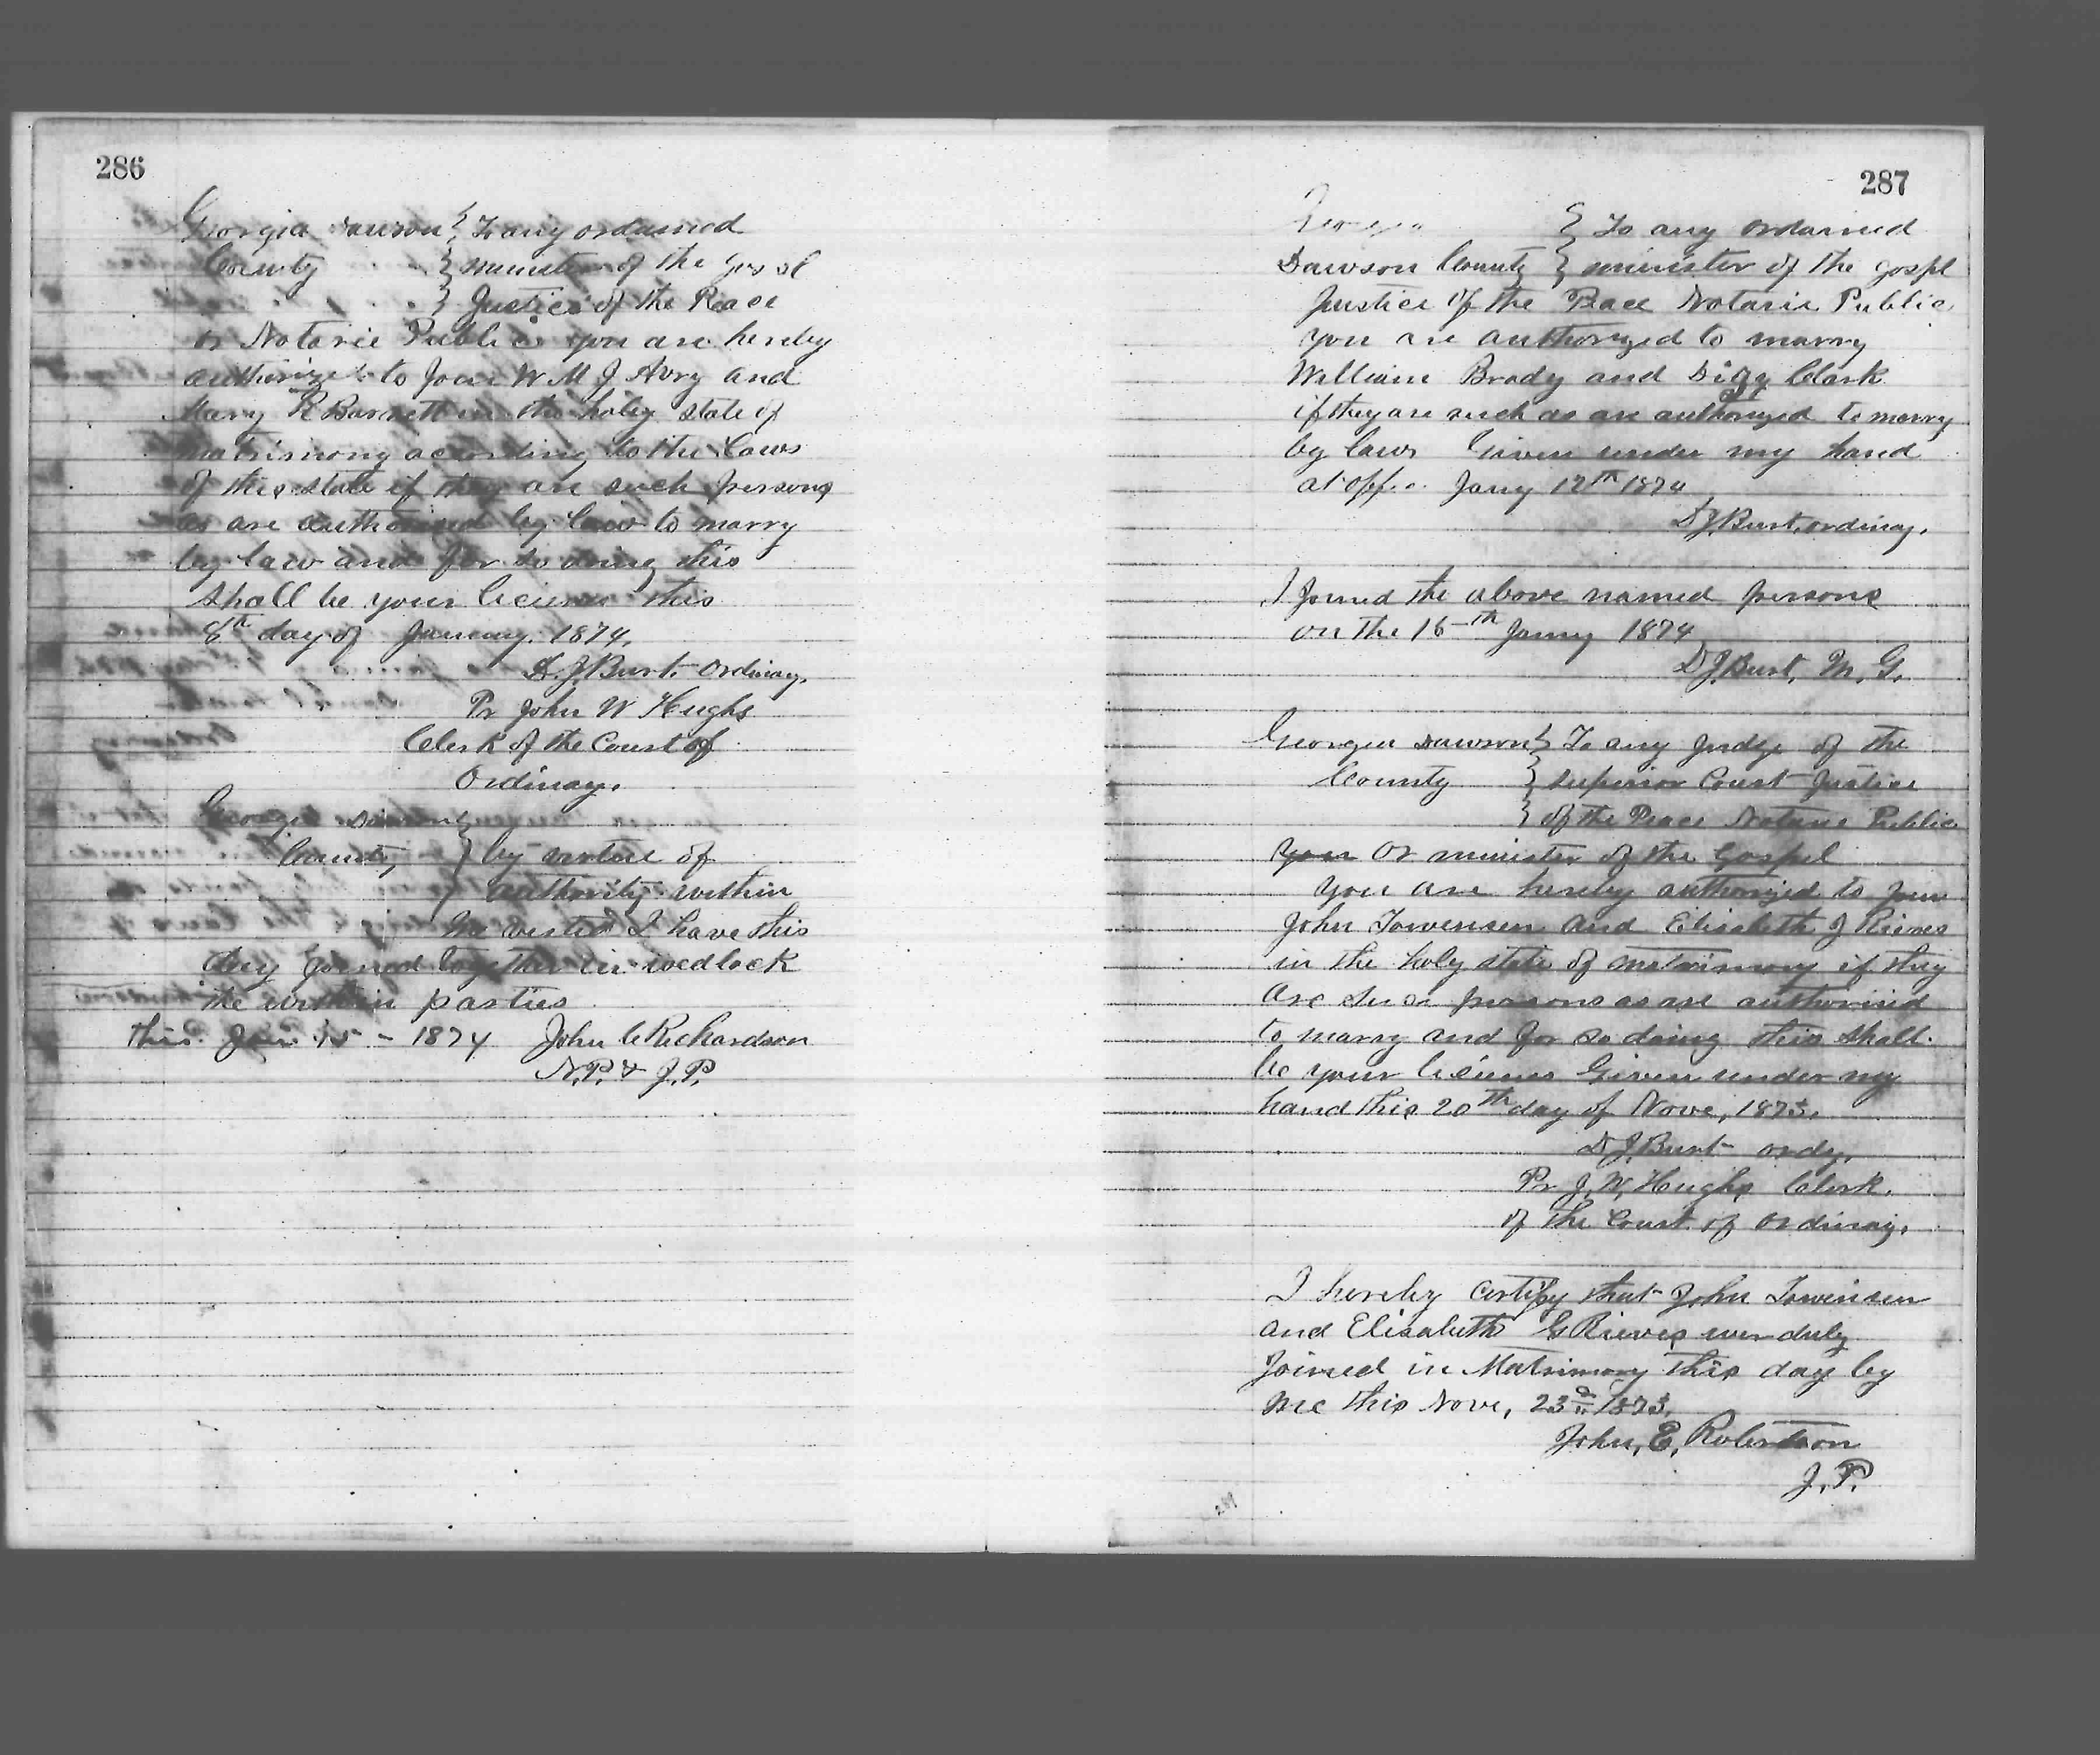 286
Georgia Dawson } To any ordained
County } minister of the Gospel
} Justice of the Peace
or Notarie Public you are hereby
authorize to Join W M J Avry and
Mary R Barnett in the holy state of
matrimony according to the Laws
of this state if they are such persons
as are authorised by law to marry
by law and for so doing this
shall be your license this
8th day of January. 1874,
D. J. Burt Ordinay,
Pr John W Hughs
Clerk of the Court of
Ordinay.
Georgia Dawson }
County, } by vartue of
} authority within
me vested I have this
day joined together in wedlock
the within parties
this Jan 15 - 1874 John C Richardson
N.P. & J.P.
287
Georgia } To any ordained
Dawson County } minister of the gospl
Justice of the Peace Notarie Public,
you are authorized to marry
William Brady and Clark
if they are such as are authorized to marry
by law Given under my hand
at Jany 12th 1874
D J. Burt, ordinay.
I Joined the above named persons
on the 16th Janny 1874
D J. Burt, M. G.
Georgia Dawson } To any Judge of the
County } superior Court Justice
} of the Peace Notarie Public
you or minister of the Gospel
you are hereby authorized to join
John Towensen and Elisabeth J Rieves
in the holy state of matrimony if they
are such persons as are authorised
to marry and for so doing this shall
be your license Given under my
hand this 20th day of Nove, 1873,
D J. Burt ordy,
Pr J. W, Hughs Clerk.
of the Court of Ordinay.
I hereby certify that John Towinsen
and Elisabeth G Rieves wer duly
Joined in Matrimony this day by
me this Nove, 23rd 1873,
John, E, Robertson
J. P.